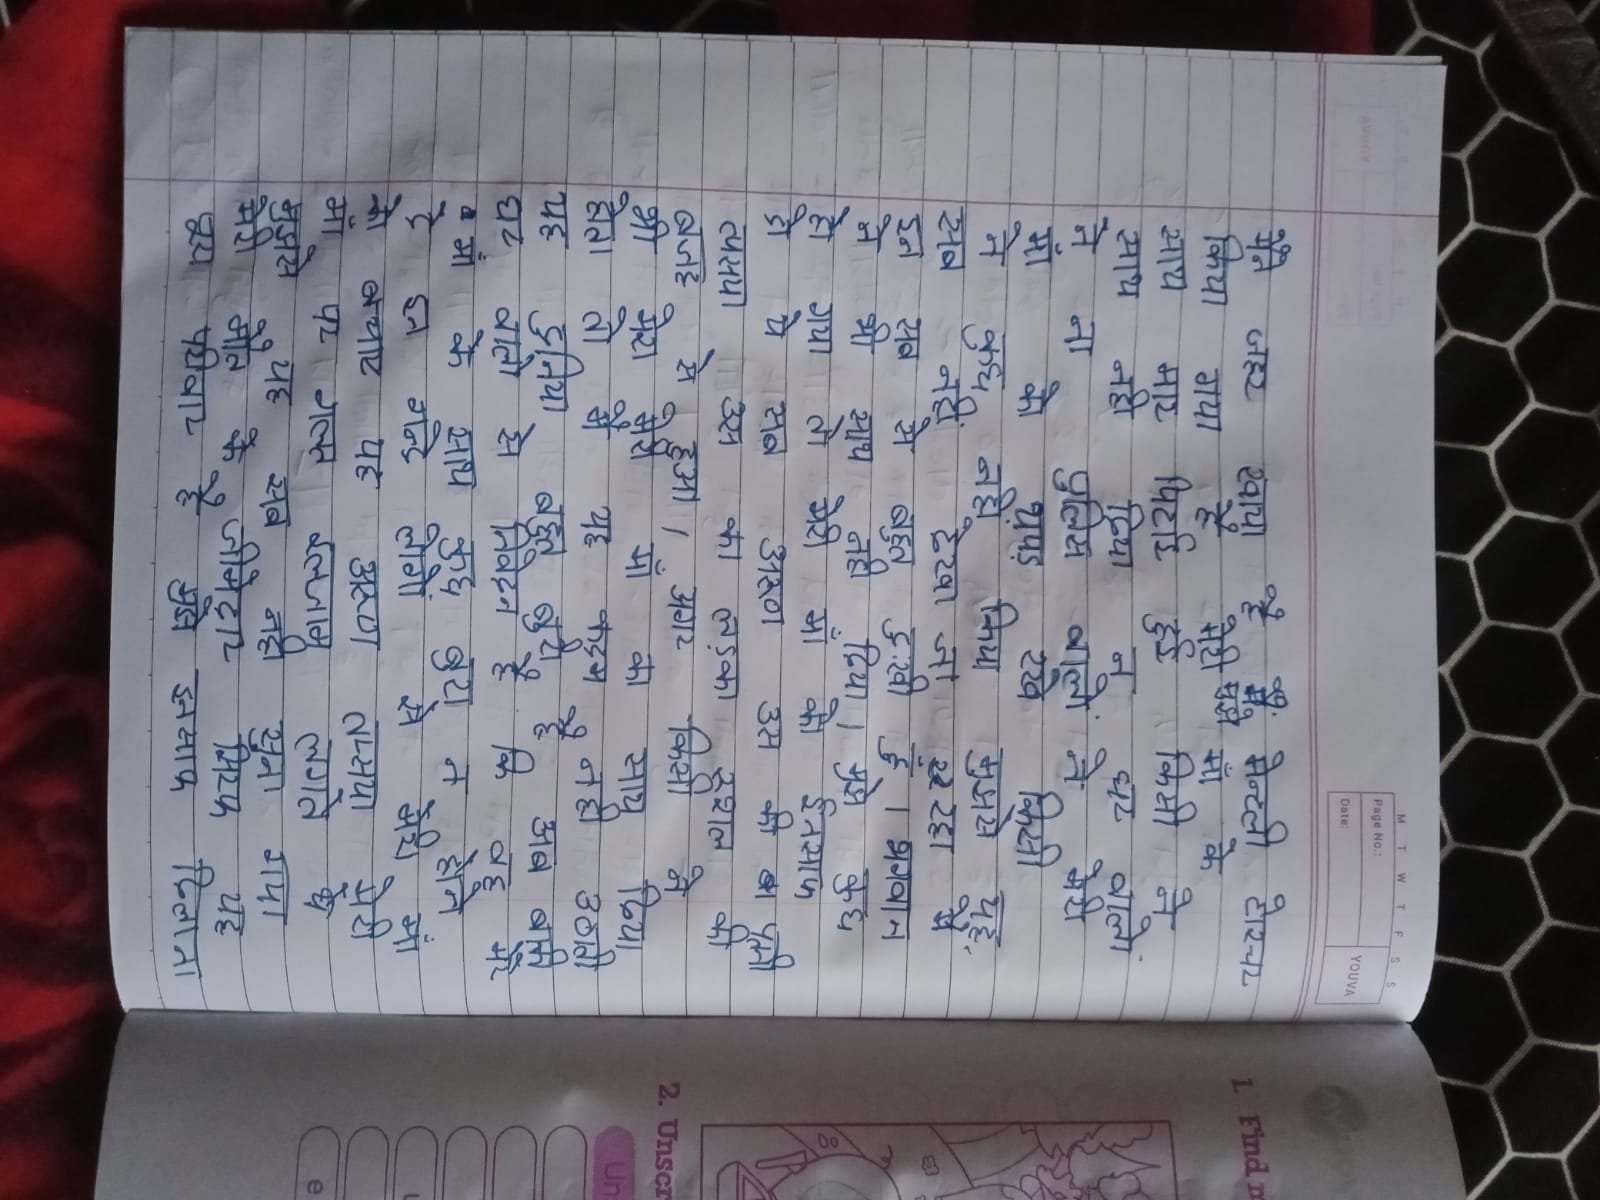 M T W T F S S
Page No.:
Date:
YOUVA
मैंने जहर खाया है मुझे मेन्टली टोरचर
किया गया है मेरी माँ के
साथ मार पिटाई हुई किसी ने
साथ नही दिया न घर वालो
ने ना पुलिस वालो ने मेरी
माँ को थप्पड़ रख किसी
ने कुछ नहीं किया मुझसे यह
सब नहीं देखा जा रहा मैं
इन सब से बहुत दुखी हूँ । भगवान
ने भी साथ नही दिया । मुझे कुछ
हो गया तो मेरी माँ को इंनसाफ
दो ये सब अरूण उस की पत्नी
तपस्या उस का लड़का रूपेश की
वजह से हुआ । अगर किसी ने
भी मेरा मेरी माँ का साथ दिया
होता तो मैं यह कदम नही उठाती
यह दुनिया बहुत बुरी है अब बाकी
घर वालो से निवेदन है कि वह मेरे
माँ के साथ कुछ बुरा न होने
दे इन गन्दे लोगो से मेरी माँ
को बचाए यह अरूण तपस्या मेरी
माँ पर गलत इल्जाम लगाते थे
मुझसे यह सब नही सुना गया
मेरी मौत के जीमेदार सिर्फ यह
पूरा परिवार है मुझे इनसाफ दिलाना
1. Find
2. Unscr
Un
e